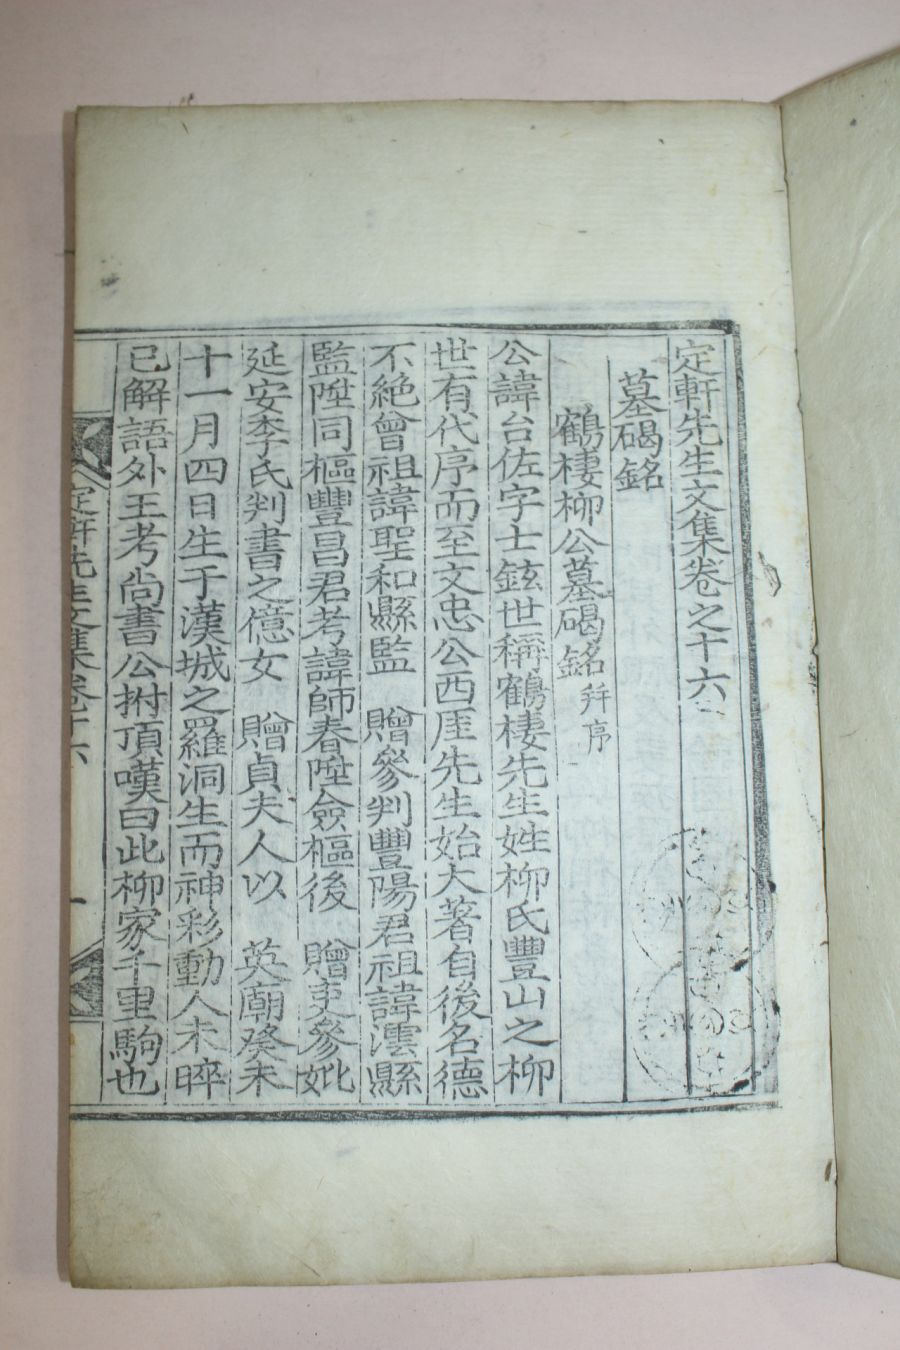 定軒先生文集卷之十六
墓碣銘
鶴棲柳公墓碣銘 幷序
公諱台佐字士鉉世稱鶴棲先生姓柳氏豐山之柳
世有代序而至文忠公西厓先生始大著自後名德
不絶曾祖諱聖和縣監 贈參判豐陽君祖諱澐縣
監陞同樞豐昌君考諱師春陞僉樞後 贈吏參妣
延安李氏判書之億女 贈貞夫人以 英廟癸未
十一月四日生于漢城之羅洞生而神彩動人未晬
已解語外王考尙書公拊頂嘆曰此柳家千里駒也
定軒先生文集卷十六 一